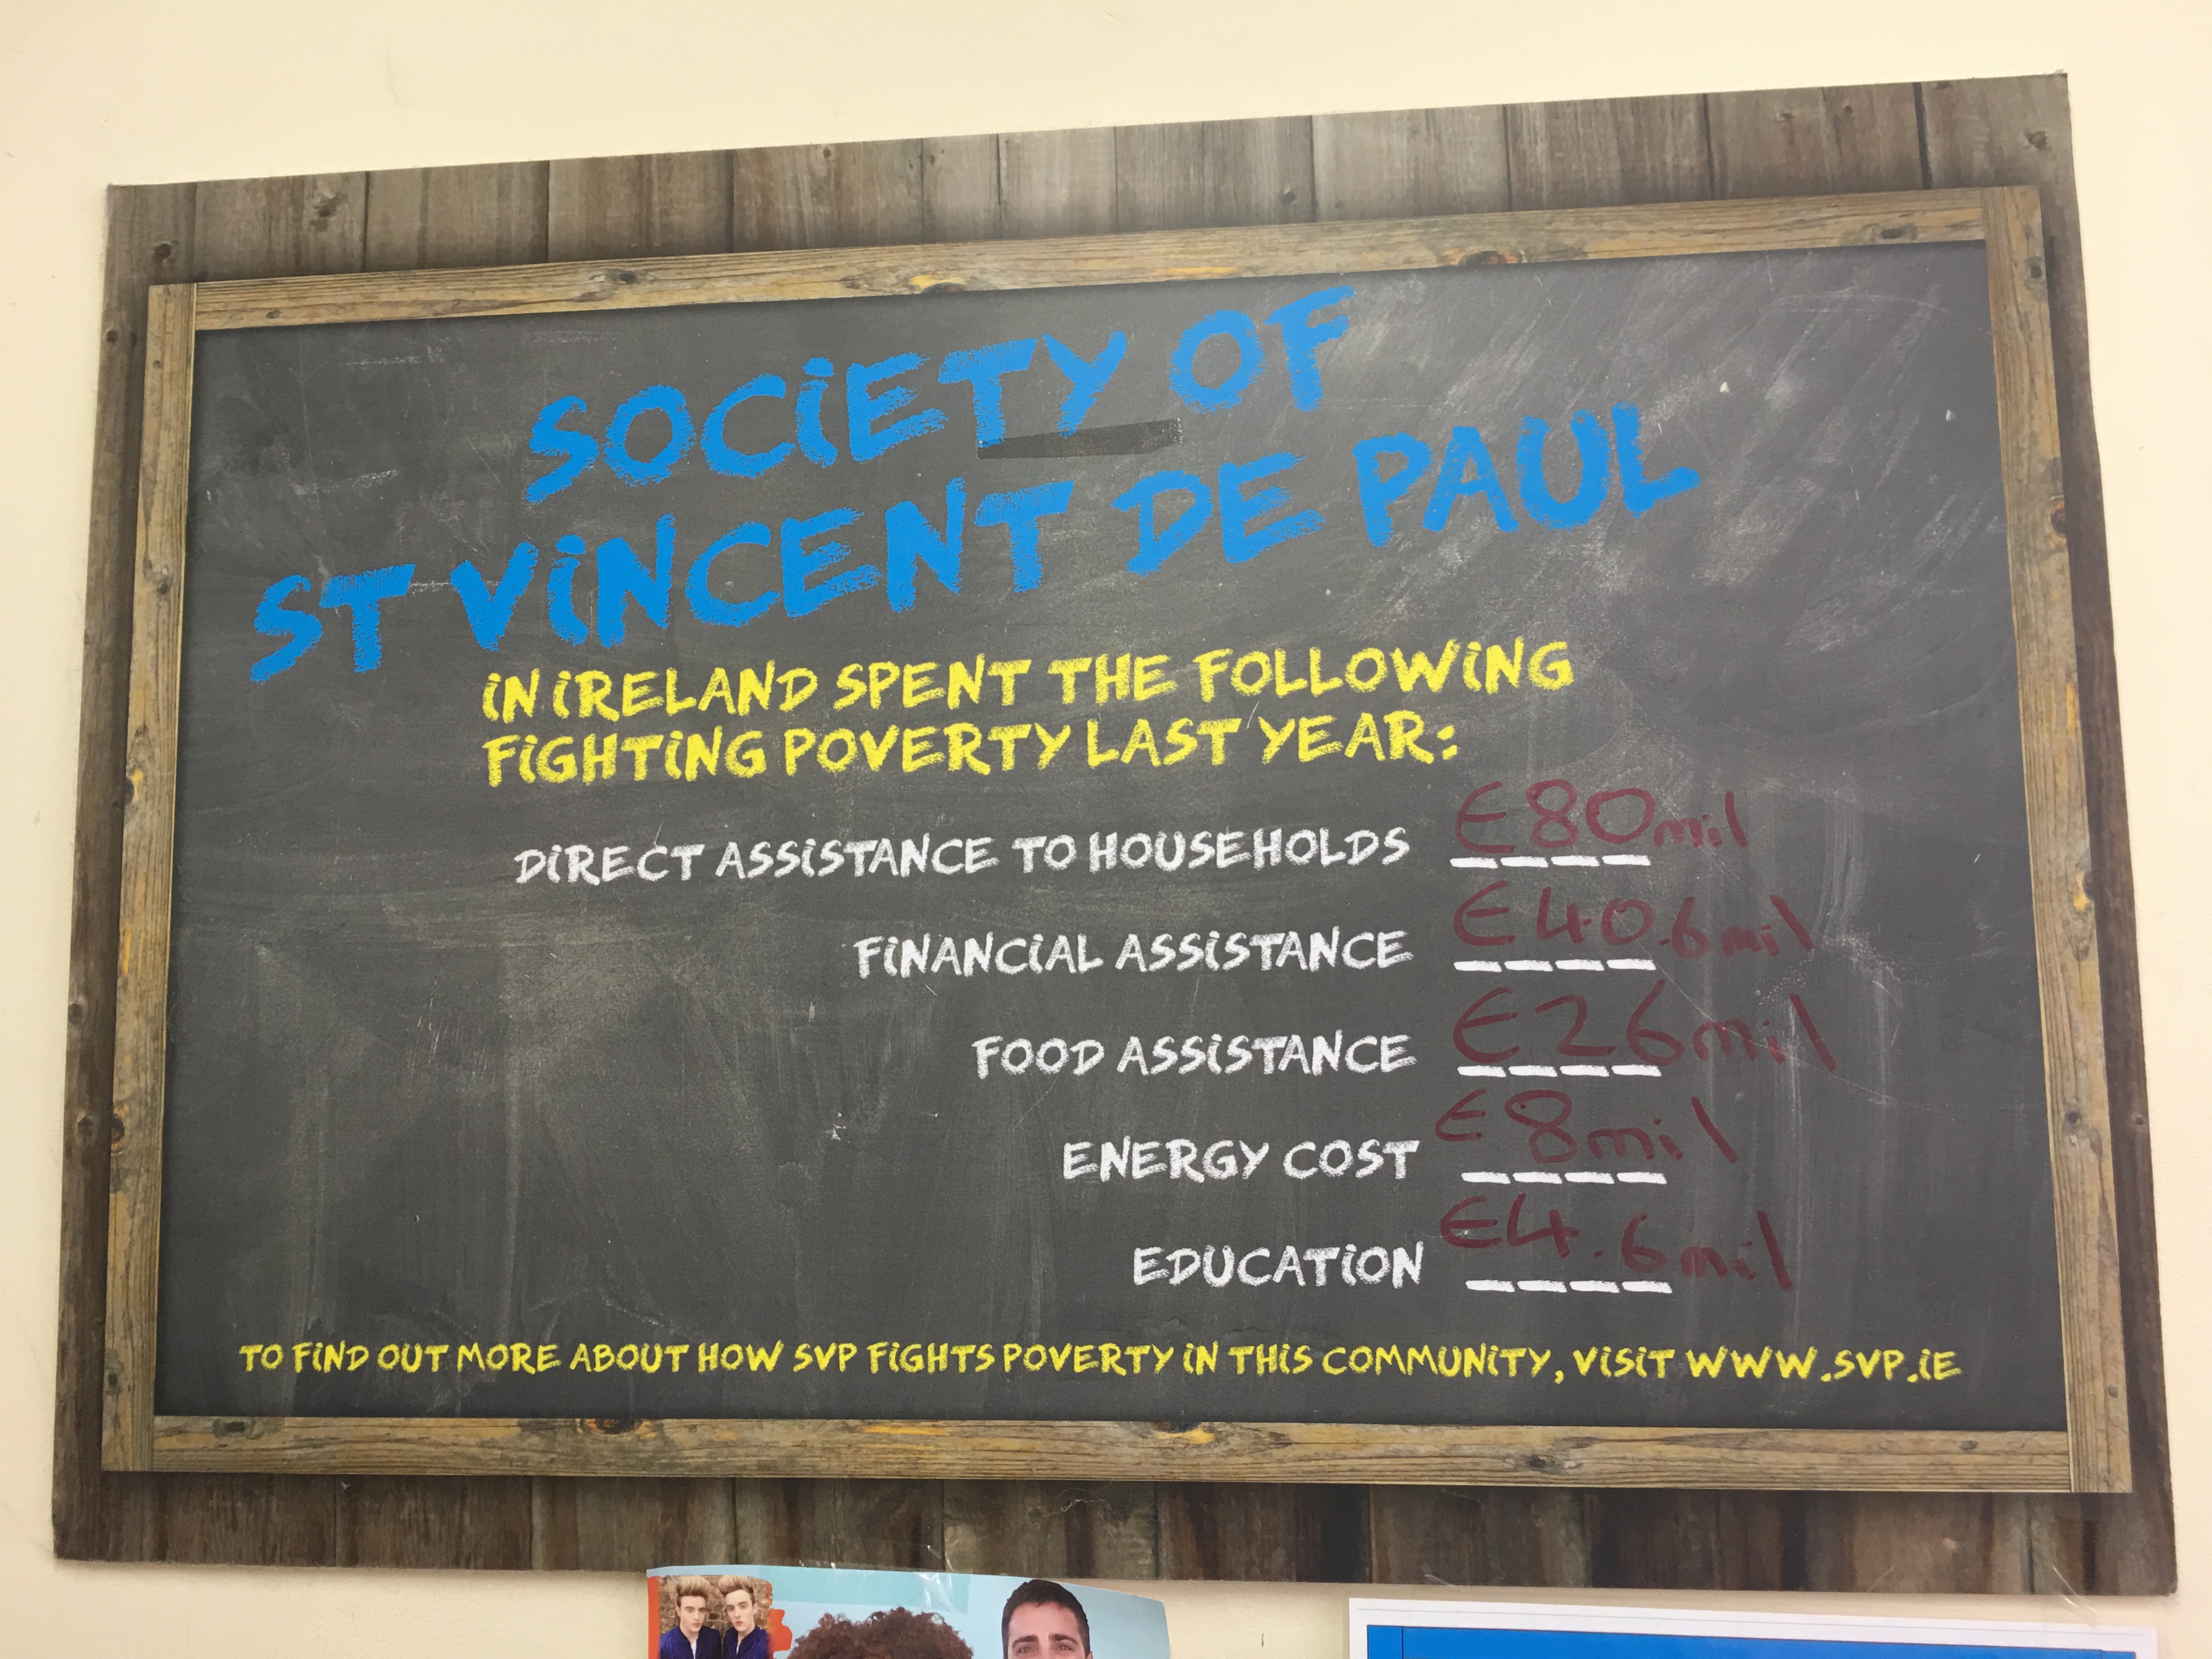 SOCIETY OF
ST VINCENT DE PAUL
IN IRELAND SPENT THE FOLLOWING
FIGHTING POVERTY LAST YEAR:
DIRECT ASSISTANCE TO HOUSEHOLDS €80mil
FINANCIAL ASSISTANCE €40.6mil
FOOD ASSISTANCE €26mil
ENERGY COST €8mil
EDUCATION €4.6mil
TO FIND OUT MORE ABOUT HOW SVP FIGHTS POVERTY IN THIS COMMUNITY, VISIT WWW.SVP.IE